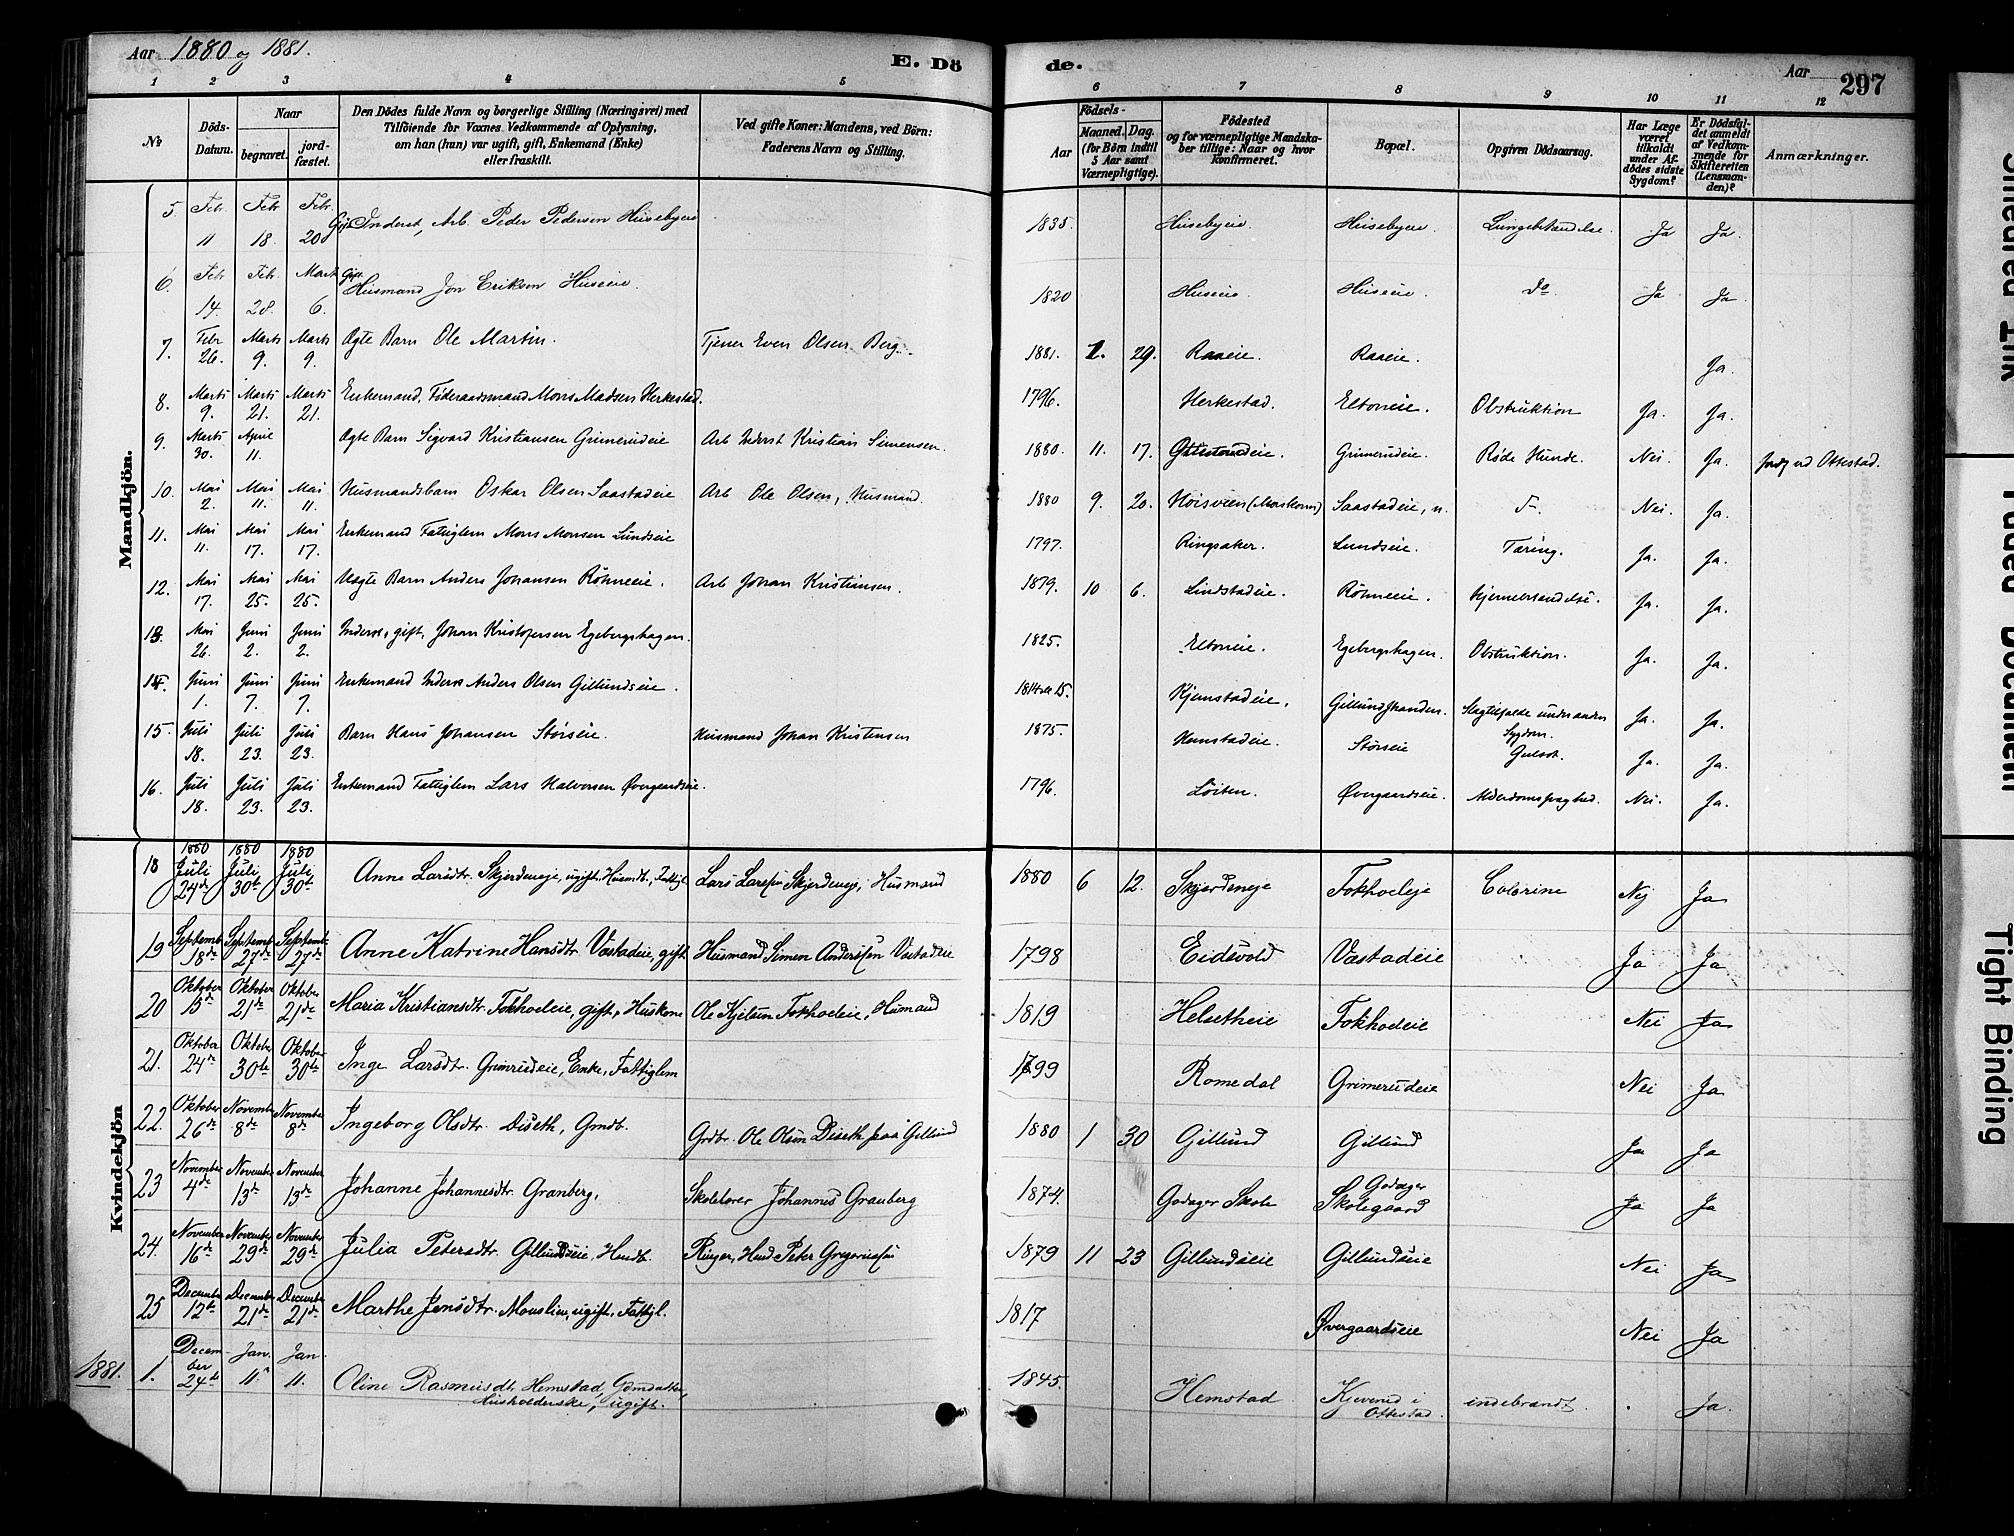 Aar 1880 og 1881.
E. Dö
de.
Aar
297
1 2 3 4 5
6 7 8 9 10 11 12
No
Döds-
Datum.
Naar
begravet.
jord-
fæstet.
Den Dödes fulde Navn og borgerlige Stilling (Næringsvei) med
Tilföiende for Voxnes Vedkommende af Oplysning,
om han (hun) var ugift, gift, Enkemand (Enke)
eller fraskilt.
Ved gifte Koner: Mandens, ved Börn:
Faderens Navn og Stilling.
Födsels-
Aar
Maaned. Dag.
(for Börn indtil
5 Aar samt
Værnepligtige).
Födested
og for værnepligtige Mandska-
ber tillige: Naar og hvor
konfirmeret.
Bopæl.
Opgiven Dödsaarsag.
Har Læge
været
tilkaldt
under Af-
dödes sidste
Sygdom?
Er Dödsfal-
det anmeldt
af Vedkom-
mende for
Skifteretten
(Lensman-
den)?
Anmærkninger.
Mandkjön.
5 Febr 11 Febr 18 Febr 20 Gift Inderst, Arb. Peder Pedersen Husebyeie 1838. Husebyeie. Husebyeie. Lungebetændelse. Ja Ja.
6. Febr 14. Febr 28. Marts 6. Gift Husmand Jon Eriksen Huseie. 1820 Huseie. Huseie. Do Ja Ja.
7. Febr 26. Marts 9. Marts 9. Ægte Barn Ole Martin. Tjener Even Olsen Berg. 1881. 1. 29. Raaeie. Raaeie. Ja.
8. Marts 9. Marts 21. Marts 21. Enkemand, Föderaadsmand Mons Madsen Herkestad. 1796. Herkestad. Eltoneie. Obstruktion Ja. Ja.
9. Marts 30. April 11. Ægte Barn Sigvard Kristiansen Grimerudeie Arb Inderst Kristian Simensen. 1880. 11. 17. Grimerudeie. Røde Hunde. Nei. Ja. Ottestad.
10. Mai 2. Mai 11. Mai 11. Husmandsbarn Oskar Olsen Saastadeie Arb Ole Olsen, Husmand. 1880 9. 20. Høisveen Saastadeie, n. Nei. Ja.
11. Mai 11. Mai 17. Mai 17. Enkemand Fattiglem Mons Monsen Lundseie 1797. Ringsaker. Lundseie. Tæring. Ja. Ja.
12. Mai 17. Mai 25. Mai 25. Uægte Barn Anders Johansen Röhneeie. Arb Johan Kristiansen. 1879. 10 6. Lindstadeie. Röhneeie. Hjernebetændelse. Ja. Ja.
13. Mai 26. Juni 2. Juni 2. Inderst, gift, Johan Kristofersen Egebergshagen. 1825. Eltoneie. Egebergshagen. Obstruktion. Ja. Ja.
14. Juni 1. Juni 7. Juni 7. Enkemand Inderst Anders Olsen Gillundseie. 1814 el 15. Kjemstadeie. Slagtilfælde under anden Sygdom. Ja. Ja.
15. Juli 18. Juli 23. Juli 23. Barn Hans Johansen Störseie. Husmand Johan Kristensen 1875. Hemstadeie. Störseie Gulsot. Ja. Ja.
16. Juli 18. Juli 23. Juli 23. Enkemand Fattiglem Lars Halvorsen Øvergaardseie. 1796. Löiten. Øvergaardseie. Alderdomssvaghed. Nei. Ja.
Kvindekjön
18 1880 Juli 24de 1880 Juli 30te 1880 Juli 30te Anne Larsdtr. Skjerdeneje, ugift, Lars Larssøn Skjerdeneje, Husmand 1880 6 12. Skjerdeneje Fokhoeleje Colerine Nej Ja
19 Septembr 18de Septembr 27de Septembr 27de Anne Katrine Hansdtr Vastadeie, gift Husmand Simen Anderssen Vastadeie 1798 Eidsvold Vastadeie Ja Ja
20 Oktober 15de Oktober 21de Oktober 21de Maria Kristiansdtr. Fokhoeleie, gift, Huskone Ole Kjelsen Fokholeie, Husmand 1819 Helsetheie Fokholeie Nei Ja
21. Oktober 24de Oktober 30te Oktober 30te Inge Larsdtr. Grimrudeie, Enke, Fattiglem 1799 Romedal Grimerudeie Nei Ja
22. Oktober 26de November 8de November 8de Ingeborg Olsdtr. Diseth, Grndb. Grdbr. Ole Olsen Diseth paa Gillund 1880 1 30 Gillund Gillund Ja Ja
23 November 4de November 13de November 13de Johanne Johannesdtr. Granberg, Skolelærer Johannes Granberg 1874. Godager Skole Godager Skolegaard Ja Ja
24. November 16de November 29de November 29de Julia Petersdtr. Gillundseie, Husdb. Ringer, Husd Peter Gregoriussen 1879 11 23 Gillundseie Gillundseie Nei Ja
25 December 12te December 21de December 21de Marthe Jensdtr. Mouslien, ugift, Fattigl. 1817 Øvergaardseie Nei Ja
1881. 1. December 24de Jan. 11 Jan. 11. Oline Rasmusdtr Hemstad, Grdmdatter, Husholderske, ugift. 1845. Hemstad i Ottestad. indebrændt. Ja.
Tight Binding